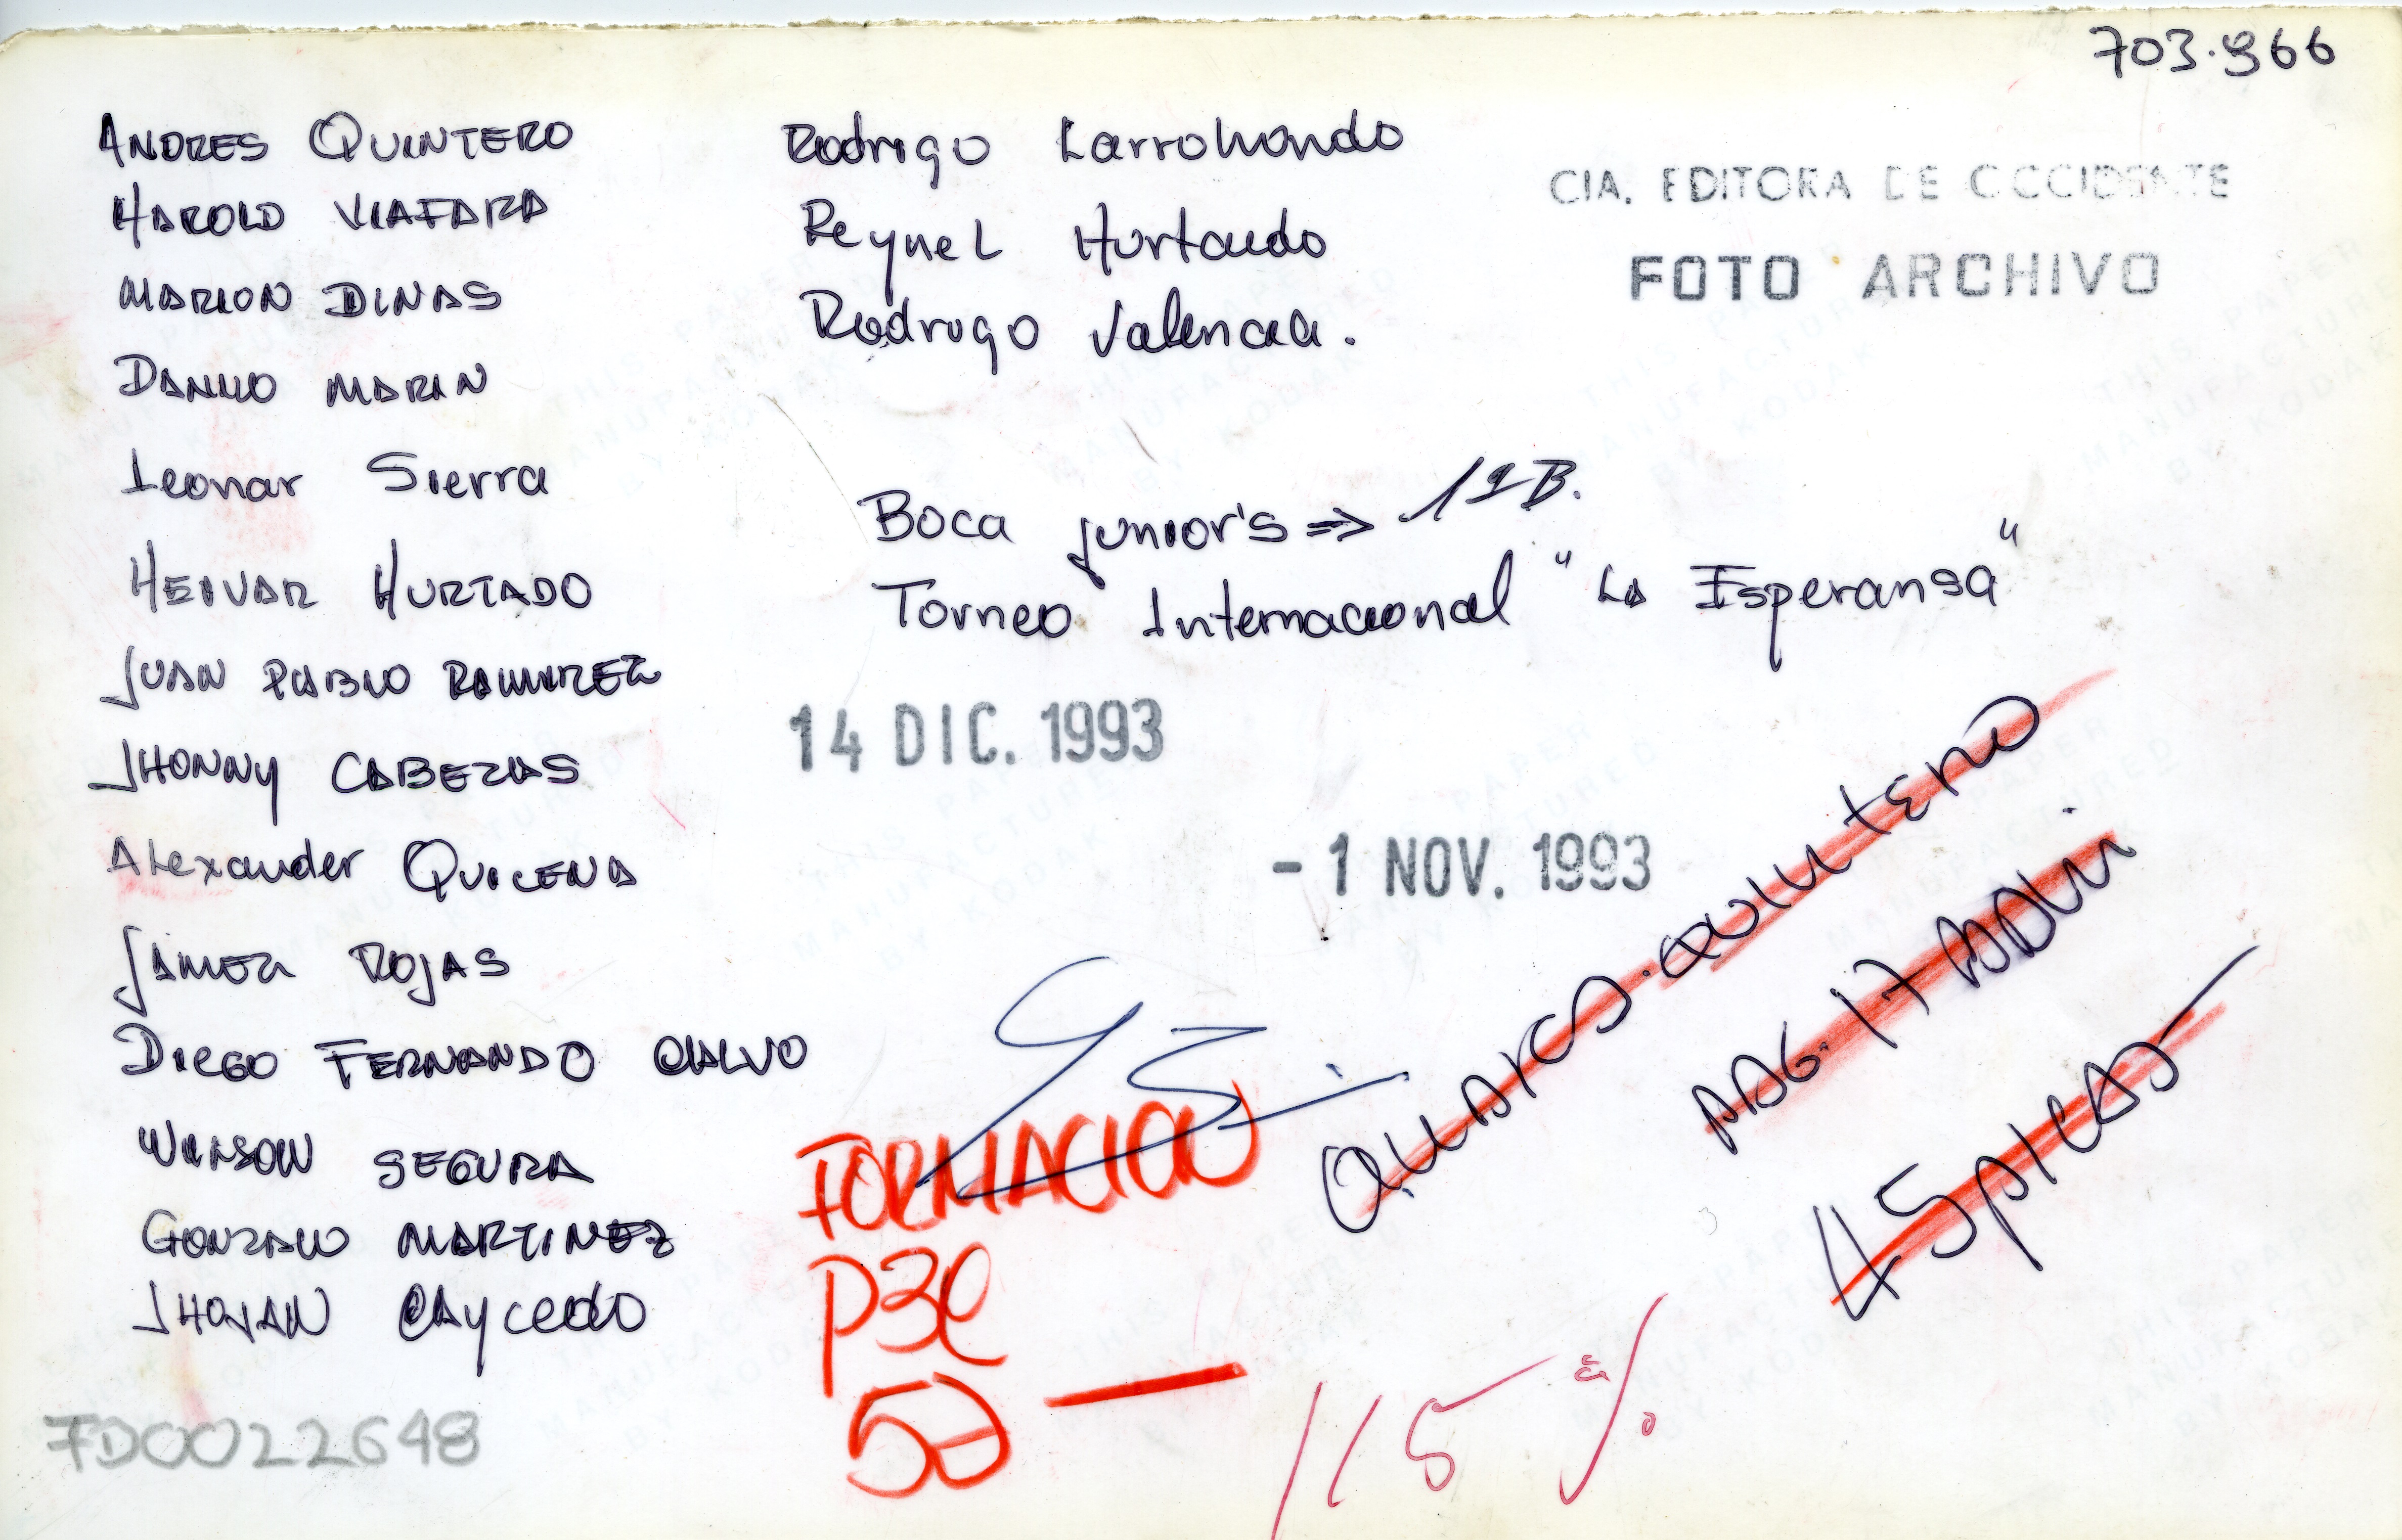 703.966
ANDRES QUINTERO
HAROLD VIAFARA
MARION DINAS
DANILO MARIN
Leonar Sierra
HEIVAR HURTADO
JUAN PABLO RAMIREZ
JHONNY CABEZAS
Alexander QUICENA
JAIMER ROJAS
DIEGO FERNANDO CALVO
WILSON SEGURA
GONZALO MARTINEZ
JHOJAN CAYCEDO
7D0022648
Rodrigo Larrohondo
Reynel Hurtaudo
Rodrigo Valencia.
CIA. EDITORA DE OCCIDENTE
FOTO ARCHIVO
Boca junior's ⇒ 1ªB.
Torneo Internacional "La Esperansa"
14 DIC. 1993
- 1 NOV. 1993
QUINTERO
PAG. 17
45 PICAS
FORMACION
115 %
THIS PAPER
MANUFACTURED
BY KODAK